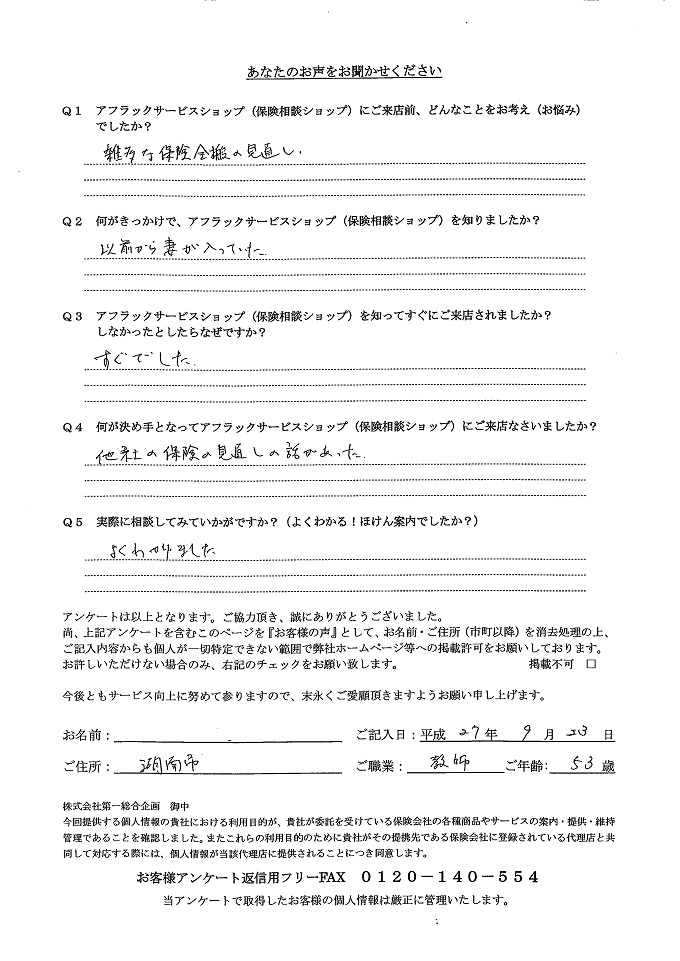 あなたのお声をお聞かせください
Q1 アフラックサービスショップ（保険相談ショップ）にご来店前、どんなことをお考え（お悩み）
でしたか？
雑多な保険全搬の見直し.
Q2 何がきっかけで、アフラックサービスショップ（保険相談ショップ）を知りましたか？
以前から妻が入っていた.
Q3 アフラックサービスショップ（保険相談ショップ）を知ってすぐにご来店されましたか？
しなかったとしたらなぜですか？
すぐでした.
Q4 何が決め手となってアフラックサービスショップ（保険相談ショップ）にご来店なさいましたか？
他社の保険の見直しの話があった.
Q5 実際に相談してみていかがですか？（よくわかる！ほけん案内でしたか？）
よくわかりました
アンケートは以上となります。ご協力頂き、誠にありがとうございました。
尚、上記アンケートを含むこのページを『お客様の声』として、お名前・ご住所（市町以降）を消去処理の上、
ご記入内容からも個人が一切特定できない範囲で弊社ホームページ等への掲載許可をお願いしております。
お許しいただけない場合のみ、右記のチェックをお願い致します。 掲載不可 □
今後ともサービス向上に努めて参りますので、末永くご愛顧頂きますようお願い申し上げます。
お名前： ご記入日：平成 27年 9月 23日
ご住所： 湖南市 ご職業： 教師 ご年齢： 53歳
株式会社第一総合企画 御中
今回提供する個人情報の貴社における利用目的が、貴社が委託を受けている保険会社の各種商品やサービスの案内・提供・維持
管理であることを確認しました。またこれらの利用目的のために貴社がその提携先である保険会社に登録されている代理店と共
同して対応する際には、個人情報が当該代理店に提供されることにつき同意します。
お客様アンケート返信用フリーFAX 0120-140-554
当アンケートで取得したお客様の個人情報は厳正に管理いたします。